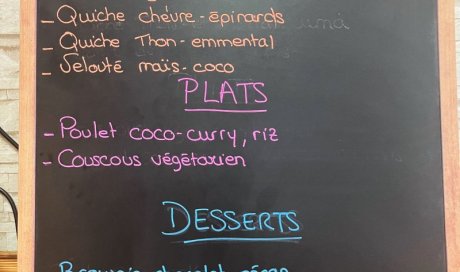 - Quiche chèvre-épinards
- Quiche Thon-emmental
- Velouté maïs-coco
PLATS
- Poulet coco-curry, riz
- Couscous végétarien
DESSERTS